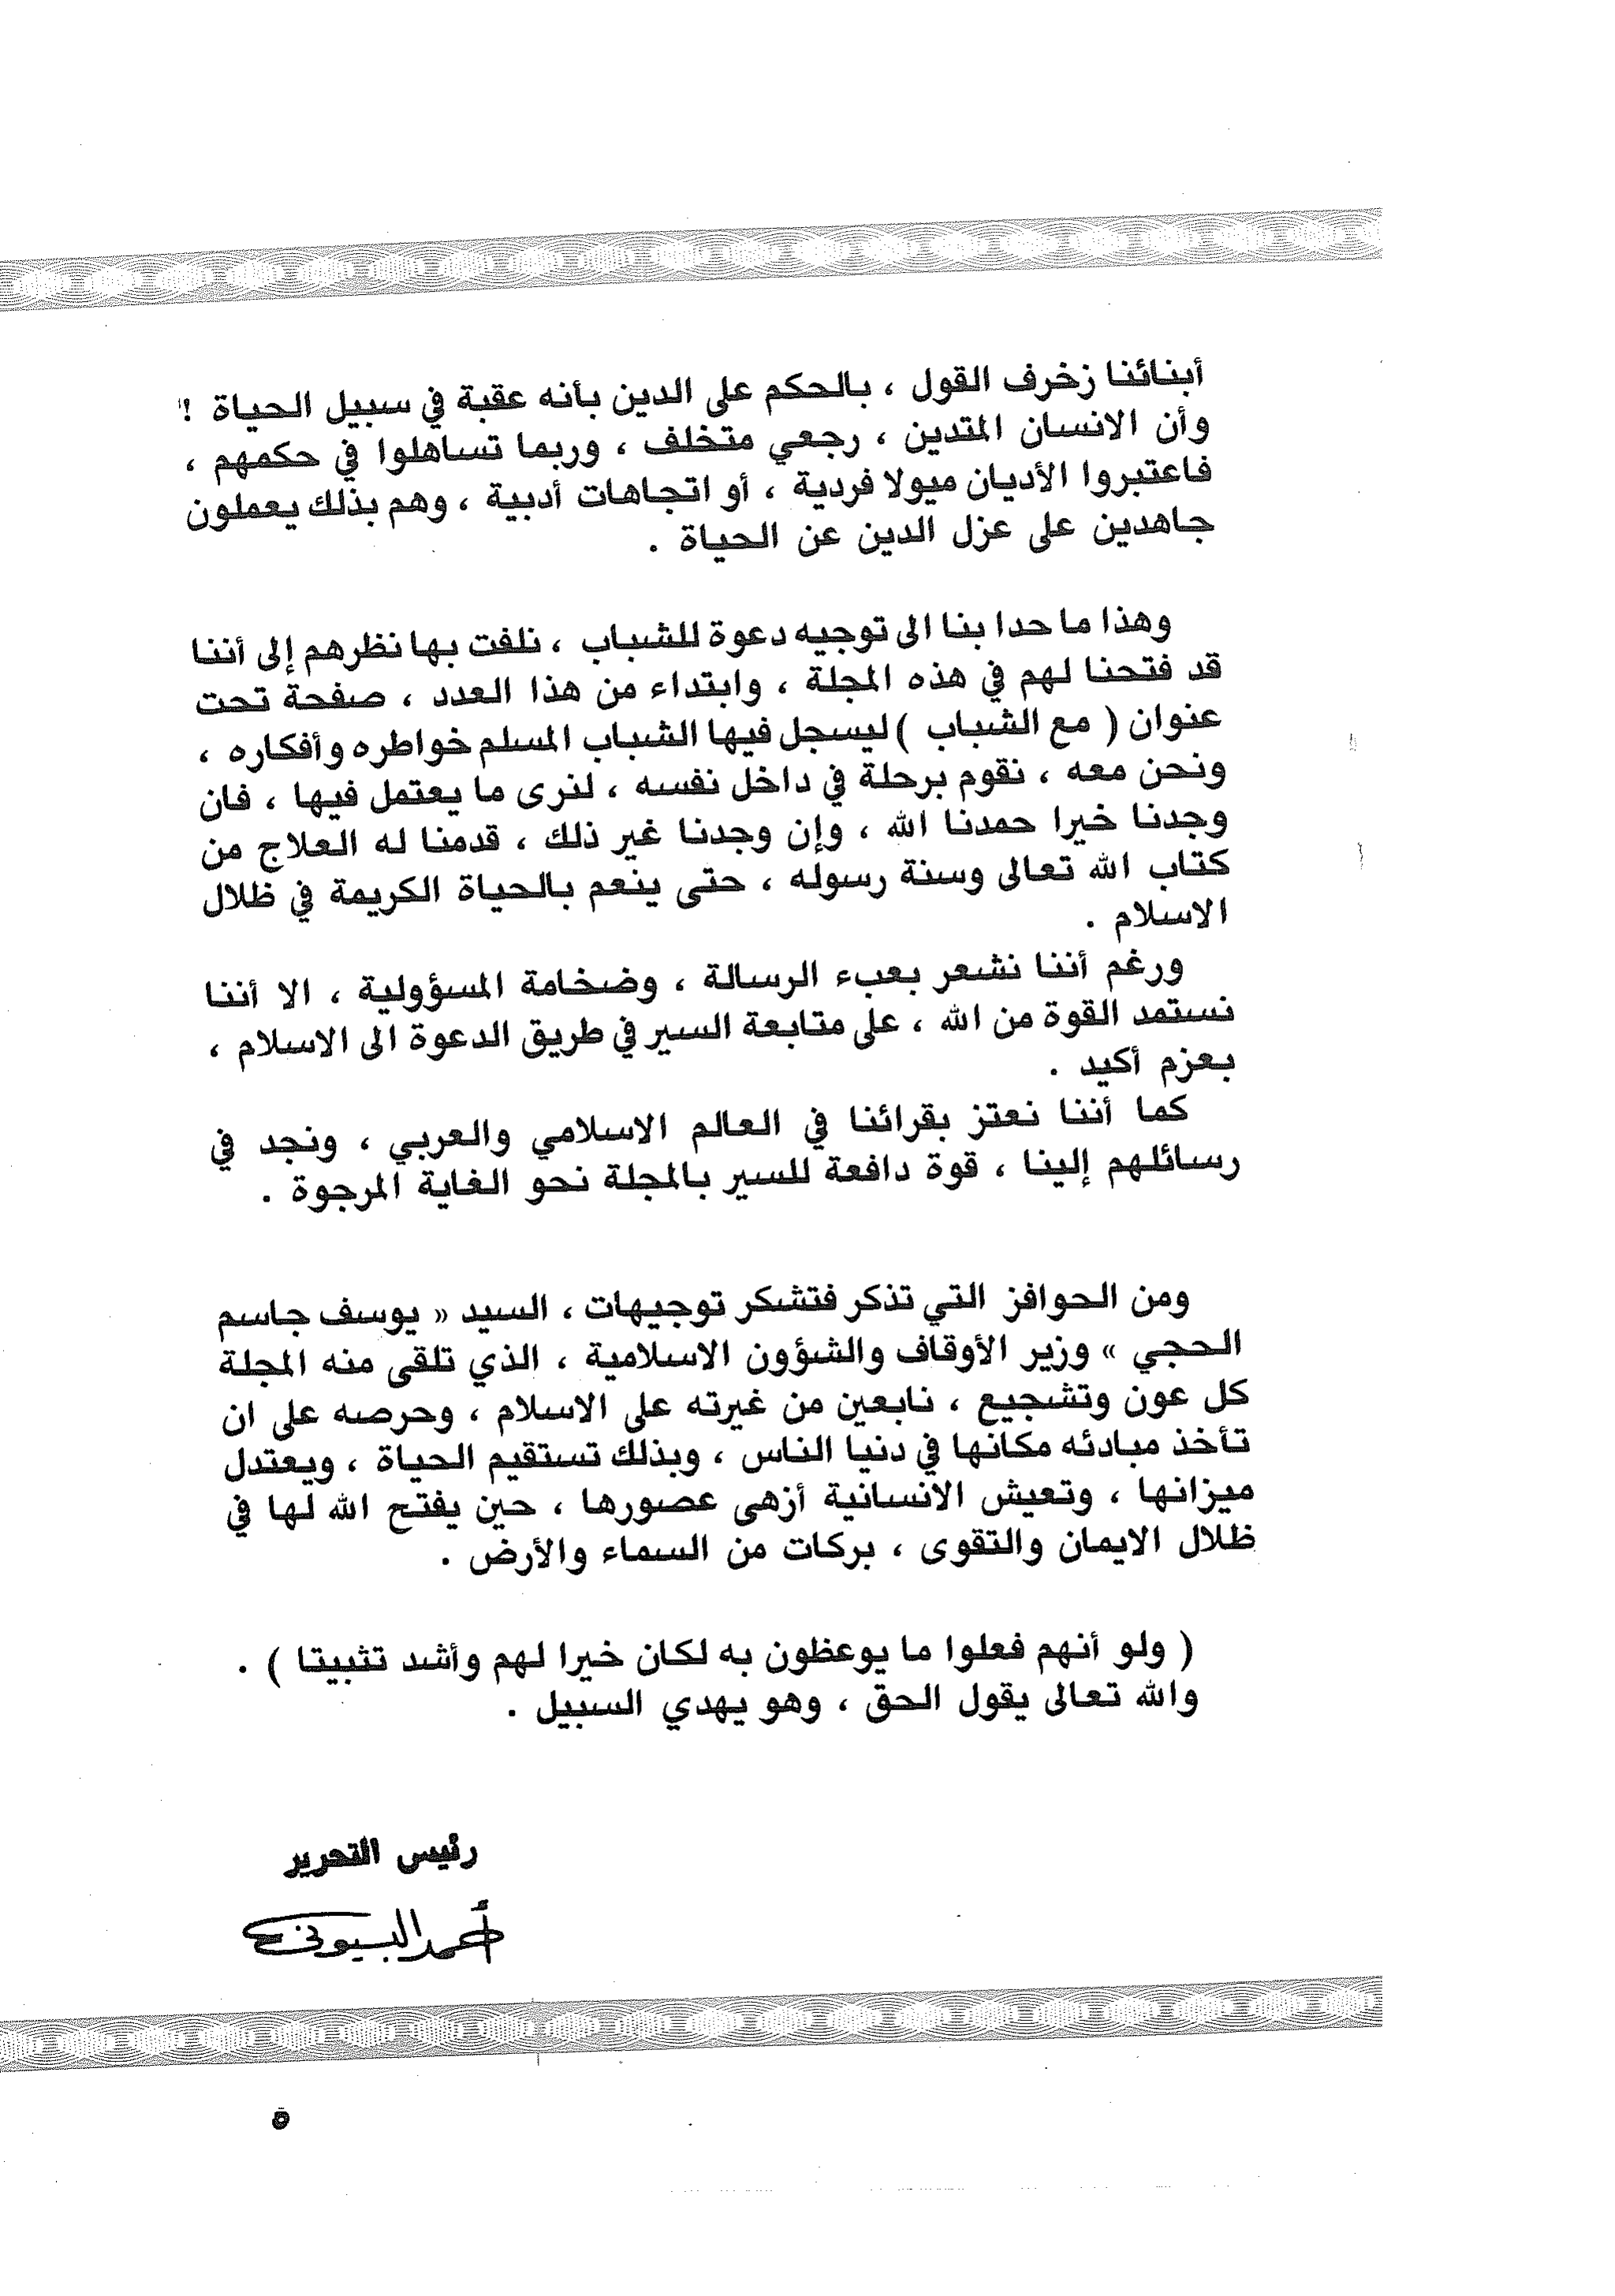 أبنائنا زخرف القول ، بالحكم على الدين بأنه عقبة في سبيل الحياة !
وأن الانسان المتدين ، رجعي متخلف ، وربما تساهلوا في حكمهم ،
فاعتبروا الأديان ميولا فردية ، أو اتجاهات أدبية ، وهم بذلك يعملون
جاهدين على عزل الدين عن الحياة .
وهذا ما حدا بنا الى توجيه دعوة للشباب ، نلفت بها نظرهم إلى أننا
قد فتحنا لهم في هذه المجلة ، وابتداء من هذا العدد ، صفحة تحت
عنوان ( مع الشباب ) ليسجل فيها الشباب المسلم خواطره وأفكاره ،
ونحن معه ، نقوم برحلة في داخل نفسه ، لنرى ما يعتمل فيها ، فان
وجدنا خيرا حمدنا الله ، وإن وجدنا غير ذلك ، قدمنا له العلاج من
كتاب الله تعالى وسنة رسوله ، حتى ينعم بالحياة الكريمة في ظلال
الاسلام .
ورغم أننا نشعر بعبء الرسالة ، وضخامة المسؤولية ، الا أننا
نستمد القوة من الله ، على متابعة السير في طريق الدعوة الى الاسلام ،
بعزم أكيد .
كما أننا نعتز بقرائنا في العالم الاسلامي والعربي ، ونجد في
رسائلهم إلينا ، قوة دافعة للسير بالمجلة نحو الغاية المرجوة .
ومن الحوافز التي تذكر فتشكر توجيهات ، السيد « يوسف جاسم
الحجي » وزير الأوقاف والشؤون الاسلامية ، الذي تلقى منه المجلة
كل عون وتشجيع ، نابعين من غيرته على الاسلام ، وحرصه على ان
تأخذ مبادئه مكانها في دنيا الناس ، وبذلك تستقيم الحياة ، ويعتدل
ميزانها ، وتعيش الانسانية أزهى عصورها ، حين يفتح الله لها في
ظلال الايمان والتقوى ، بركات من السماء والأرض .
( ولو أنهم فعلوا ما يوعظون به لكان خيرا لهم وأشد تثبيتا ) .
والله تعالى يقول الحق ، وهو يهدي السبيل .
رئيس التحرير
أحمد البسيوني
٥